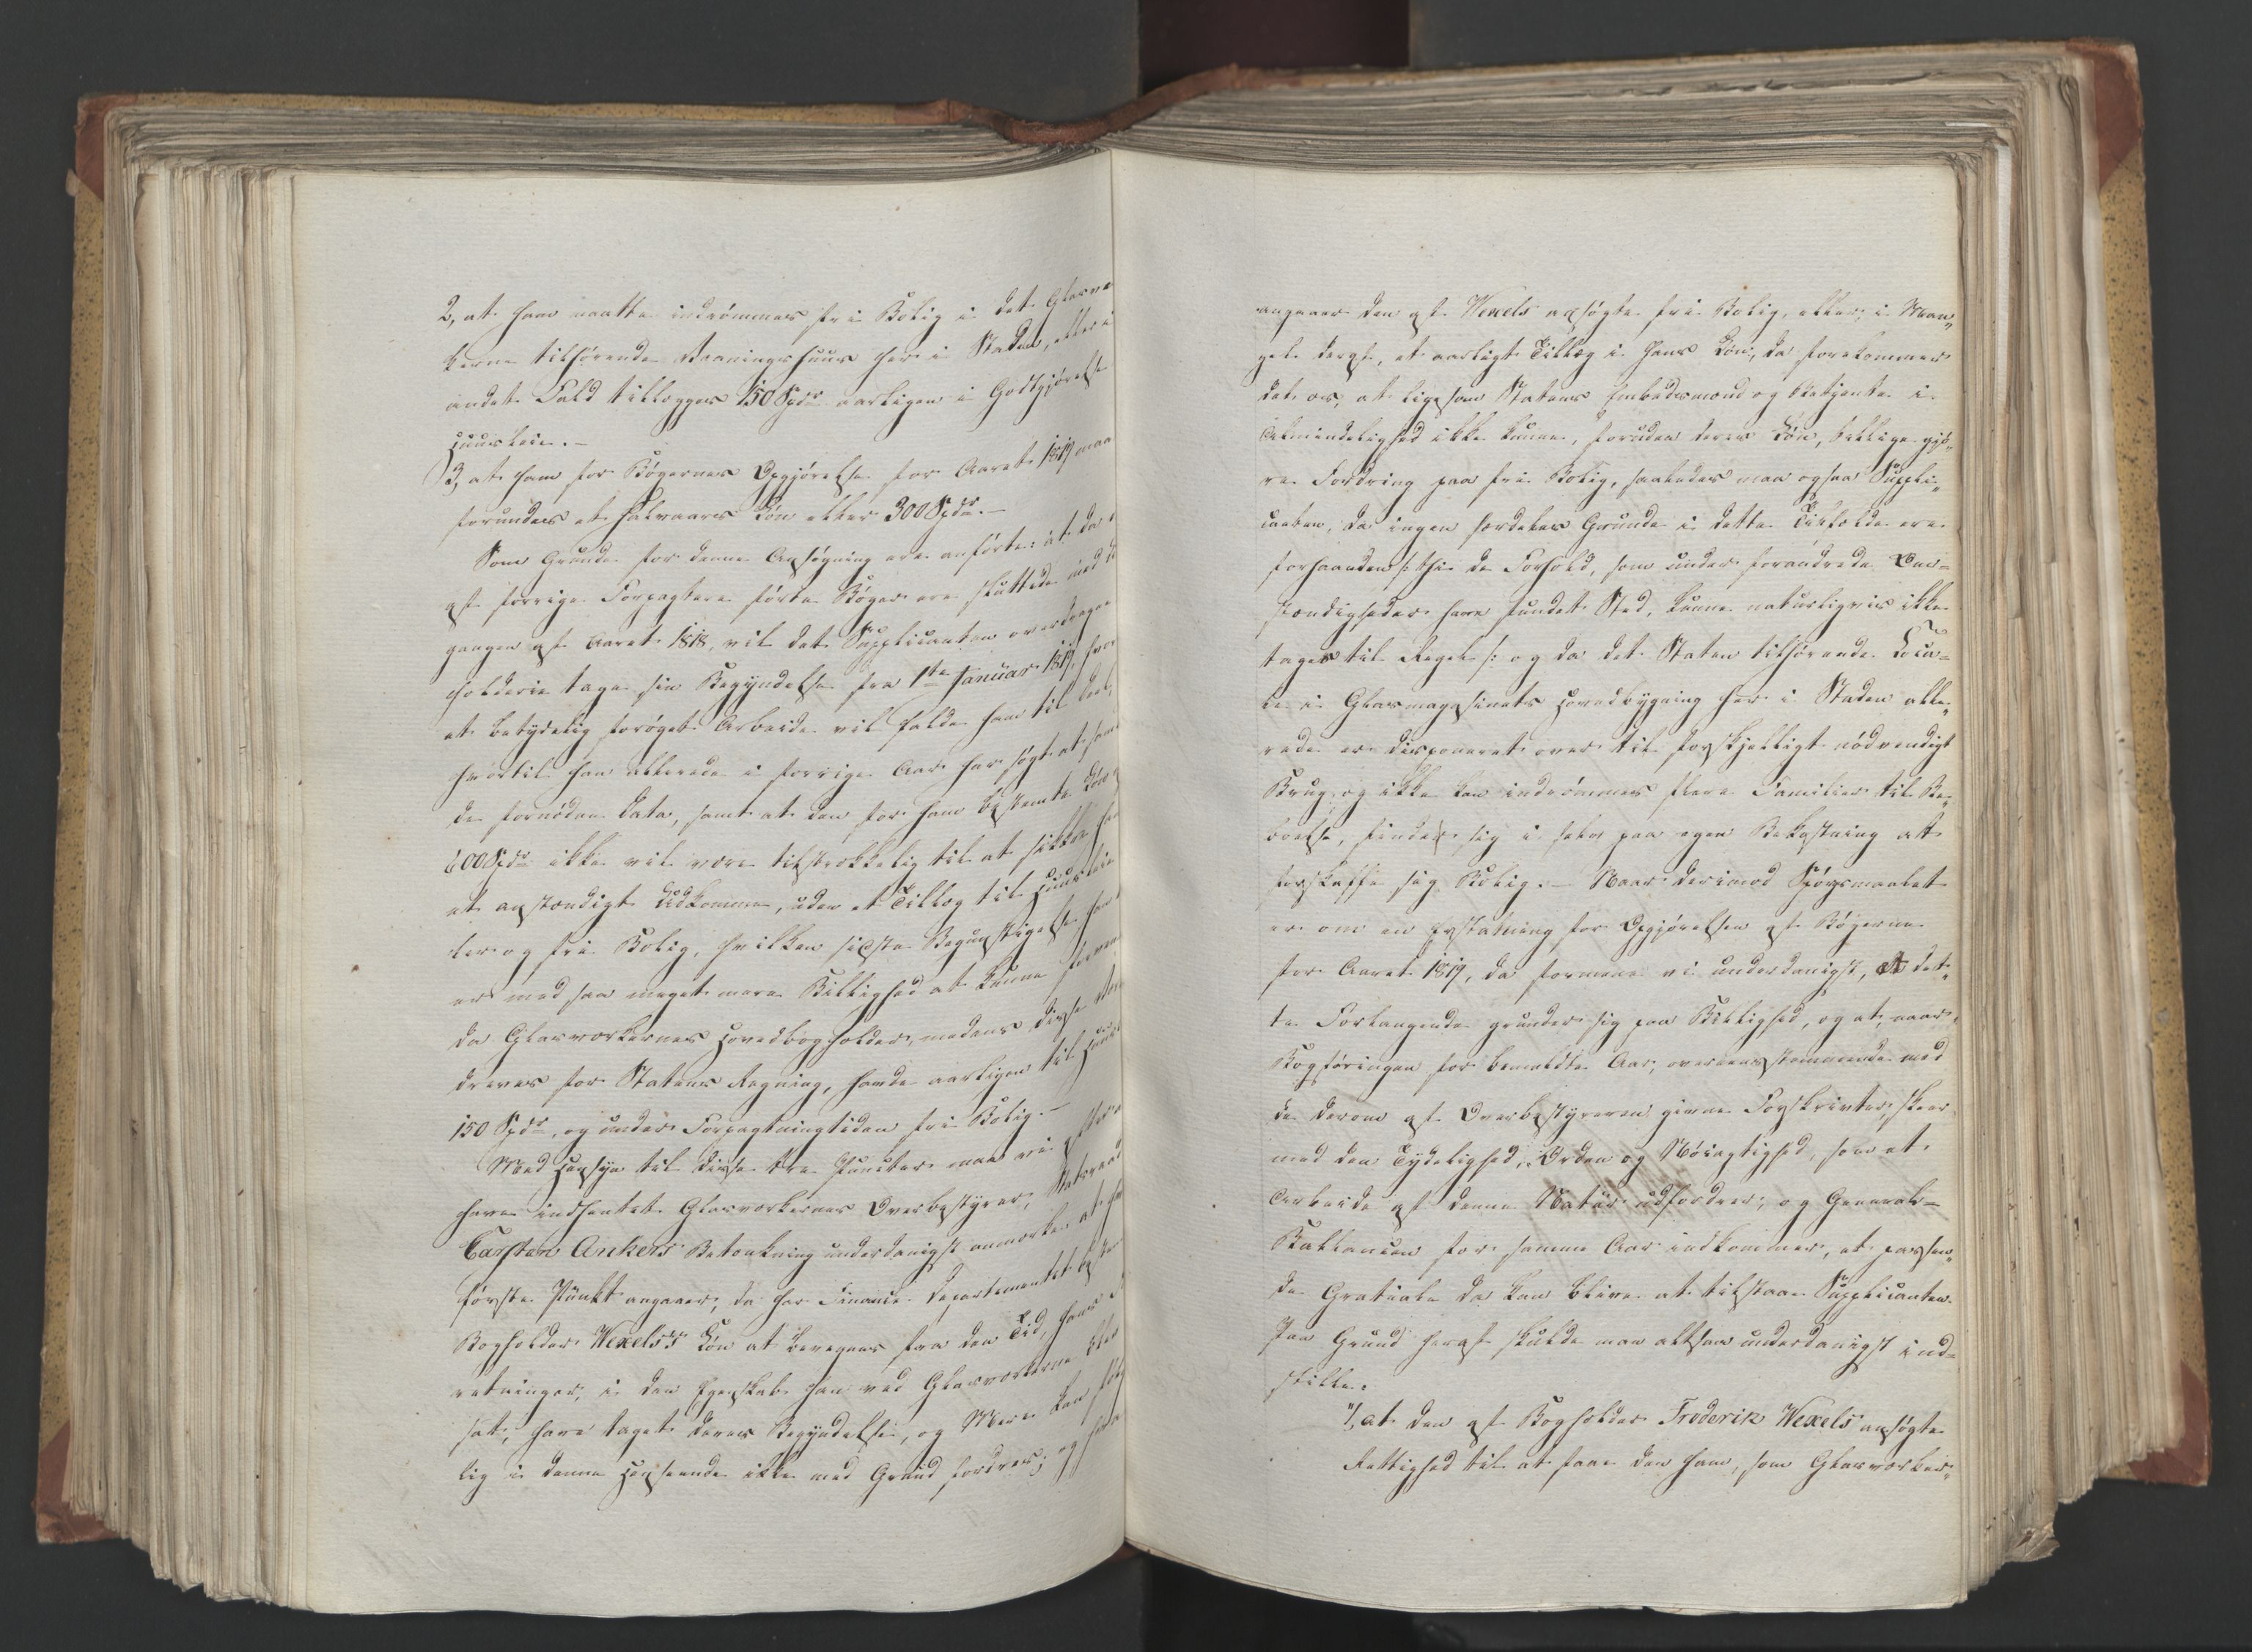 2, at ham maatte indrømmes fri Bolig i det Glasvær
kerne tilhørende Vaaningshuus her i Staden, eller i
andet Fald tillægges 150 Spdr aarligen i Godtgjørelse
Huusleie. –
3, at ham for Bøgernes Opgjørelse for Aaret 1819 maa
forundes et halvaars Løn eller 300 Spdr. –
Som Grunde for denne Ansøgning ere anførte: at da
af forrige Forpagtere førte Bøger ere sluttede med
gangen af Aaret 1818, vil det Supplicanten overdragne
holderie tage sin Begyndelse fra 1ste Januar 1819, hvor
et betydelig forøget Arbeide vil falde ham til Deel,
hvortil han allerede i forrige Aar har søgt at saml
de fornødne Data, samt at den for ham bestemte Løn
600 Spdr ikke vil være tilstrækkelig til at sikkre ham
et anstændigt Udkomme, uden et Tillæg til Huusleie
ler og fri Bolig, hvilken sidste Begunstigelse han
er med saa meget mere Billighed at kunne
da Glasværkernes Hovedbogholder, medens disse
dreves for Statens Regning, havde aarligen til Huus
150 Spdr, og under Forpagtningtiden fri Bolig. –
Med Hensyn til disse tre Puncter maa vi efter
have indhentet Glasværkernes Overbestyrer, Statsraad
Carsten Ankers Betænkning underdanigst anmærke at hv
første Punkt angaaer, da har Finance-Departementet
Bogholder Wexels's Løn at beregnes fra den Tid, hans
retninger, i den Egenskab han ved Glasværkerne blev
sat, have taget deres Begyndelse, og Mere kan
lig i denne Henseende ikke med Grund fordres; og hvad
angaaer den af Wexels ansøgte fri Bolig, eller, i Man„
gel deraf, et aarligt Tillæg i hans Løn, da forekommer
det os, at ligesom Statens Embedsmænd og Betjente i
Almindelighed ikke kunne, foruden deres Løn, tillige gjø„
re Fordring paa fri Bolig, saaledes maa ogsaa Suppli„
canten, da ingen særdeles Grunde i dette Tilfælde ere
forhaanden /: thi de Forhold, som under forandrede Om-
stændigheder have fundet Sted, kunne naturligviis ikke
tages til Regel :/ og da det Staten tilhørende Loca-
le i Glasmagasinets Hovedbygning her i Staden alle„
rede er disponeret over til forskjelligt nødvendigt
Brug og ikke kan indrømmes flere Familier til Be„
boelse, finde sig i selv paa egen Bekostning att
forskaffe sig Bolig. – Naar derimod Spørgsmaalet
er om en Erstatning for Opgjørelsen af Bøgerne
for Aaret 1819, da formene vi underdanigst, at det„
te Forlangende grunder sig paa Billighed, og at, naar
Bogføringen for bemeldte Aar, overeensstemmende med
de derom af Overbestyreren givne Forskrivter, skeer
med den Tydelighed, Orden og Nøiagtighed, som et
Arbeide af denne Natur udfordrer, og General-
Ballancen for samme Aar indkommer, et passen„
de Gratiale da kan blive at tilstaae Supplicanten.
Paa Grund heraf skulde man altsaa underdanigst ind-
stille:
1, at den af Bogholder Frederik Wexels ansøgte
Rettighed til at faae den ham, som Glasværker„